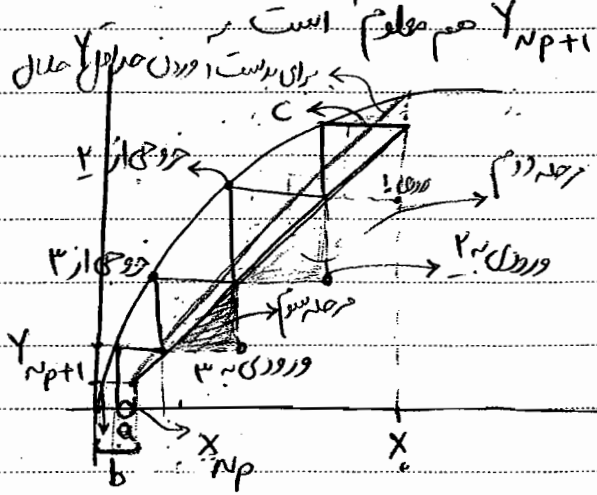 Y Np+1 هم معلوم است
Y
برای بدست اوردن حداقل حلال
C
خروجی از ۲
مرحله دوم
خروجی از ۳
ورودی به ۲
مرحله سوم
Y Np+1
ورودی به ۳
a
X Np
X₀
b